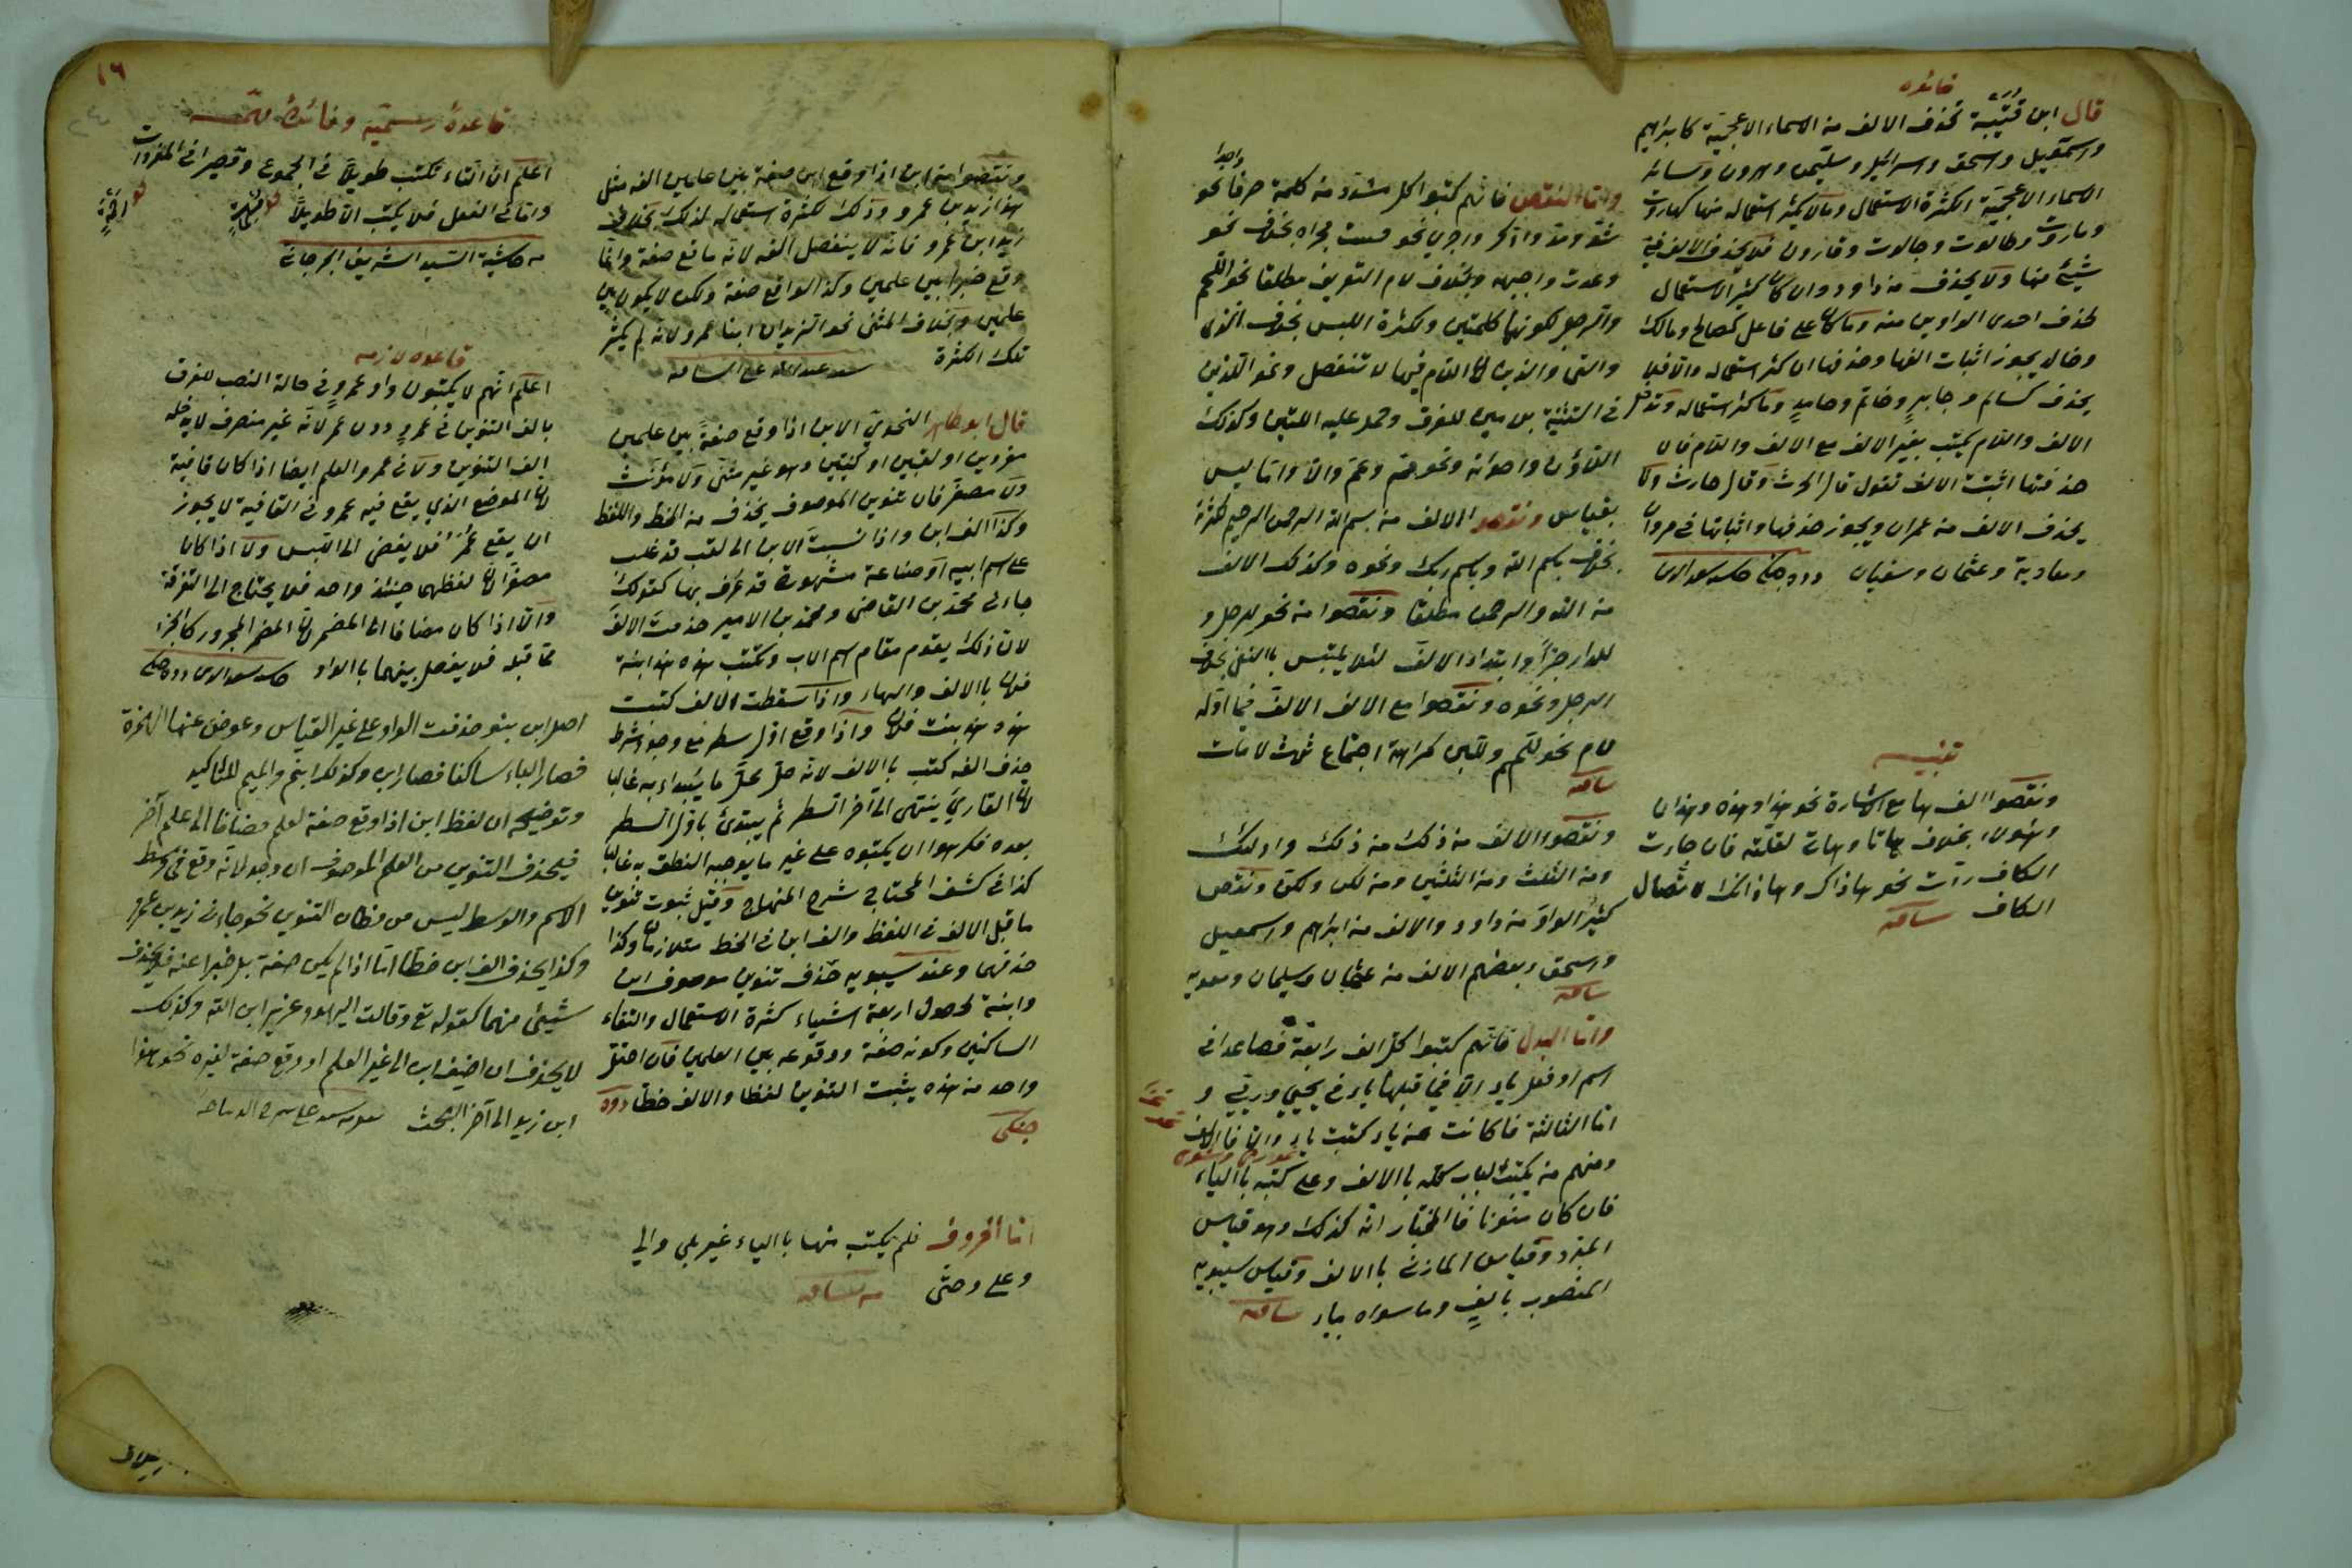 فائدة
قال ابن قتيبة تحذف الالف من الاسماء الاعجميّة كابراهيم
واسمعيل واسحق واسرائيل وسليمن وهرون وسائر
الاسماء الاعجميّة لكثرة الاستعمال وما لا يكثر استعماله منها كهاروت
وماروت وطالوت وجالوت وقارون فلا يحذف الالف في
شيئ منها ولا يحذف من داود وان كان كثير الاستعمال
لحذف احدى الواوين منه وما كان على فاعل كصالح ومالك
وخالد يجوز اثبات الفها وحذفها ان كثر استعماله والا فلا
يحذف كسالم وجابر وخاتم وحامد وما كثر استعماله وتدخل
الالف واللام يكتب بغير الالف مع الالف واللام فان
حذفتها اثبتّ الالف تقول قال الحرث وقال حارث ولا
يحذف الالف من عمران ويجوز حذفها واثباتها في مروان
ومعاوية وعثمان وسفيان دده جنكى
تنبيه
ونقصوا الف ها مع الاشارة نحو هذا وهذه وهذان
وهؤلاء بخلاف هاتا وهاتى لقلّته فان جاءت
الكاف ردّت نحو هاذاك وهاذانك لاتّصال
الكاف شافيه
وامّا النقص فانّهم كتبوا كل مشدّد من كلمة حرفا واحدا نحو
شدّ ومدّ وادّكر واجرى نحو قتتّ مجراه بخلاف نحو
وعدت واجبهه وبخلاف لام التعريف مطلقا نحو اللّحم
والرجل لكونهما كلمتين ولكثرة اللبس بخلاف الذى
والتى والذين لانّ اللام فيها لا تنفصل ونحو اللذين
في التثنية بلامين للفرق وحمل عليه اللتين وكذلك
اللاؤن واخواته ونحو ممّ وعمّ والّا وامّا ليس
بقياس ونقصوا الالف من بسم الله الرحمن الرحيم لكثرته
بخلاف باسم الله وباسم ربك ونحوه وكذلك الالف
من الله والرحمن مطلقا ونقصوا من نحو للرجل و
للدار جرّا وابتداء الالف لئلا يلتبس بالنفى بخلاف
الرجل ونحوه ونقصوا مع الالف الالف فيما اوّله
لام نحو للّحم وللّبن كراهة اجتماع ثلث لامات
شافيه
ونقصوا الالف من ذلك من ذلك واولئك
ومن الثلث ومن الثلثين ومن لكن ولكنّ ونقص
كثير الواو من داود والالف من ابراهيم واسمعيل
واسحق وبعضهم الالف من عثمان وسليمان ومعويه
شافيه
وامّا البدل فانّهم كتبوا كل الف رابعة فصاعدا في
اسم او فعل ياء الّا فيما قبلها ياء في يحيى وريّى و
امّا الثالثة فان كانت عن ياء كتبت ياء والّا فالالف
ومنهم من يكتب الباب كله بالالف وعلى كتبه بالياء
فان كان منوّنا فالمختار انّه كذلك وهو قياس
المبرّد وقياس المازنى بالالف وقياس سيبويه
المنصوب بالف وما سواه بياء شافيه
ونقصوا من ابن اذا وقع ابن صفة بين علمين الفه مثل
هذا زيد بن عمرو وذلك لكثرة استعماله لذلك بخلاف
زيد ابن عمرو فانّه لا ينقص الفه لانّه ما وقع صفة وانّما
وقع خبرا بين علمين وكذا الواقع صفة ولكن لا يكون بين
علمين وبخلاف المثنى نحو الزيدان ابنا عمرو لانّه لم يكثر
تلك الكثرة
قال ابو طاهر النحوىّ الابن اذا وقع صفة بين علمين
مفردين او لقبين او كنيتين وهو غير مثنّى ولا مؤنّث
ولا مصغّر فان تنوين الموصوف يحذف من الخط واللفظ
وكذا الف ابن واذا نسبت الابن الى لقب قد غلب
على اسم ابيه او صناعة مشهورة قد عرف بها كقولك
جاءنى محمّد بن القاضى ومحمّد بن الامير حذفت الالف
لانّ ذلك يقوم مقام اسم الاب وتكتب هذه هند ابنة
فلان بالالف والهاء واذا سقطت الالف كتبت
هذه هند بنت فلان واذا وقع اوّل سطر مع وجود شرط
حذف الفه كتب بالالف لانّه حلّ محلّ ما يبتداء به غالبا
لانّ القارئ ينتهى الى آخر السطر ثم يبتدئ باوّل السطر
بعده فكرهوا ان يكتبوه على غير ما يوجبه النطق به غالبا
كذا في كشف المحتاج شرح المنهاج وقيل ثبوت تنوين
ما قبل الالف في اللفظ والف ابن في الخط متلازمان وكذا
حذفهما وعند سيبويه حذف تنوين موصوف ابن
وابنة لحصول اربعة اشياء كثرة الاستعمال والتقاء
الساكنين وكونه صفة ووقوعه بين العلمين فان اختلّ
واحد من هذه يثبت التنوين لفظا والالف خطّا دده
جنكى
امّا الحروف فلم يكتب منها بالياء غير بلى والى
وعلى وحتّى من الشافيه
١٦
قاعدة رسميّة وفائدة مهمّة
اعلم انّ التاء تكتب طويلا في الجموع وقصيرا في المفردات
وامّا في الفعل فلا يكتب الّا طويلا
من حاشية السيد الشريف الجرجانى
قاعده لازمه
اعلم انّهم لا يكتبون واو عمرو في حالة النصب للفرق
بالف التنوين في عمرو دون عمر لانّه غير منصرف لا يدخله
الف التنوين ولا في عمرو العلم ايضا اذا كان قافية
لانّ الموضع الذى يقع فيه عمرو في القافية لا يجوز
ان يقع عمر فلا يفضى الى اللبس ولا اذا كان
مصغّرا لانّ لفظهما حينئذ واحد فلا يحتاج الى التفرقة
والّا اذا كان مضافا الى المضمر لانّ المضمر المجرور كالجزء
ممّا قبله فلا يفصل بينهما بالواو دده جنكى
اصل ابن بنو حذفت الواو على غير القياس وعوض عنها الهمزة
فصار الباء ساكنا فصار ابن وكذلك ابنم والميم للتاكيد
وتوضيحه ان لفظ ابن اذا وقع صفة لعلم مضافا الى علم آخر
فيحذف التنوين من العلم الموصوف ان وجد لانّه وقع في وسط
الاسم والوسط ليس من مظان التنوين نحو جاءنى زيد بن عمرو
وكذا يحذف الف ابن خطّا امّا اذا لم يكن صفة بل خبرا عنه فلا يحذف
شيئ منهما كقوله تع وقالت اليهود عزير ابن الله وكذلك
لا يحذف ان اضيف ابن الى غير العلم او وقع صفة لغيره نحو هذا
ابن زيد الى آخر البحث